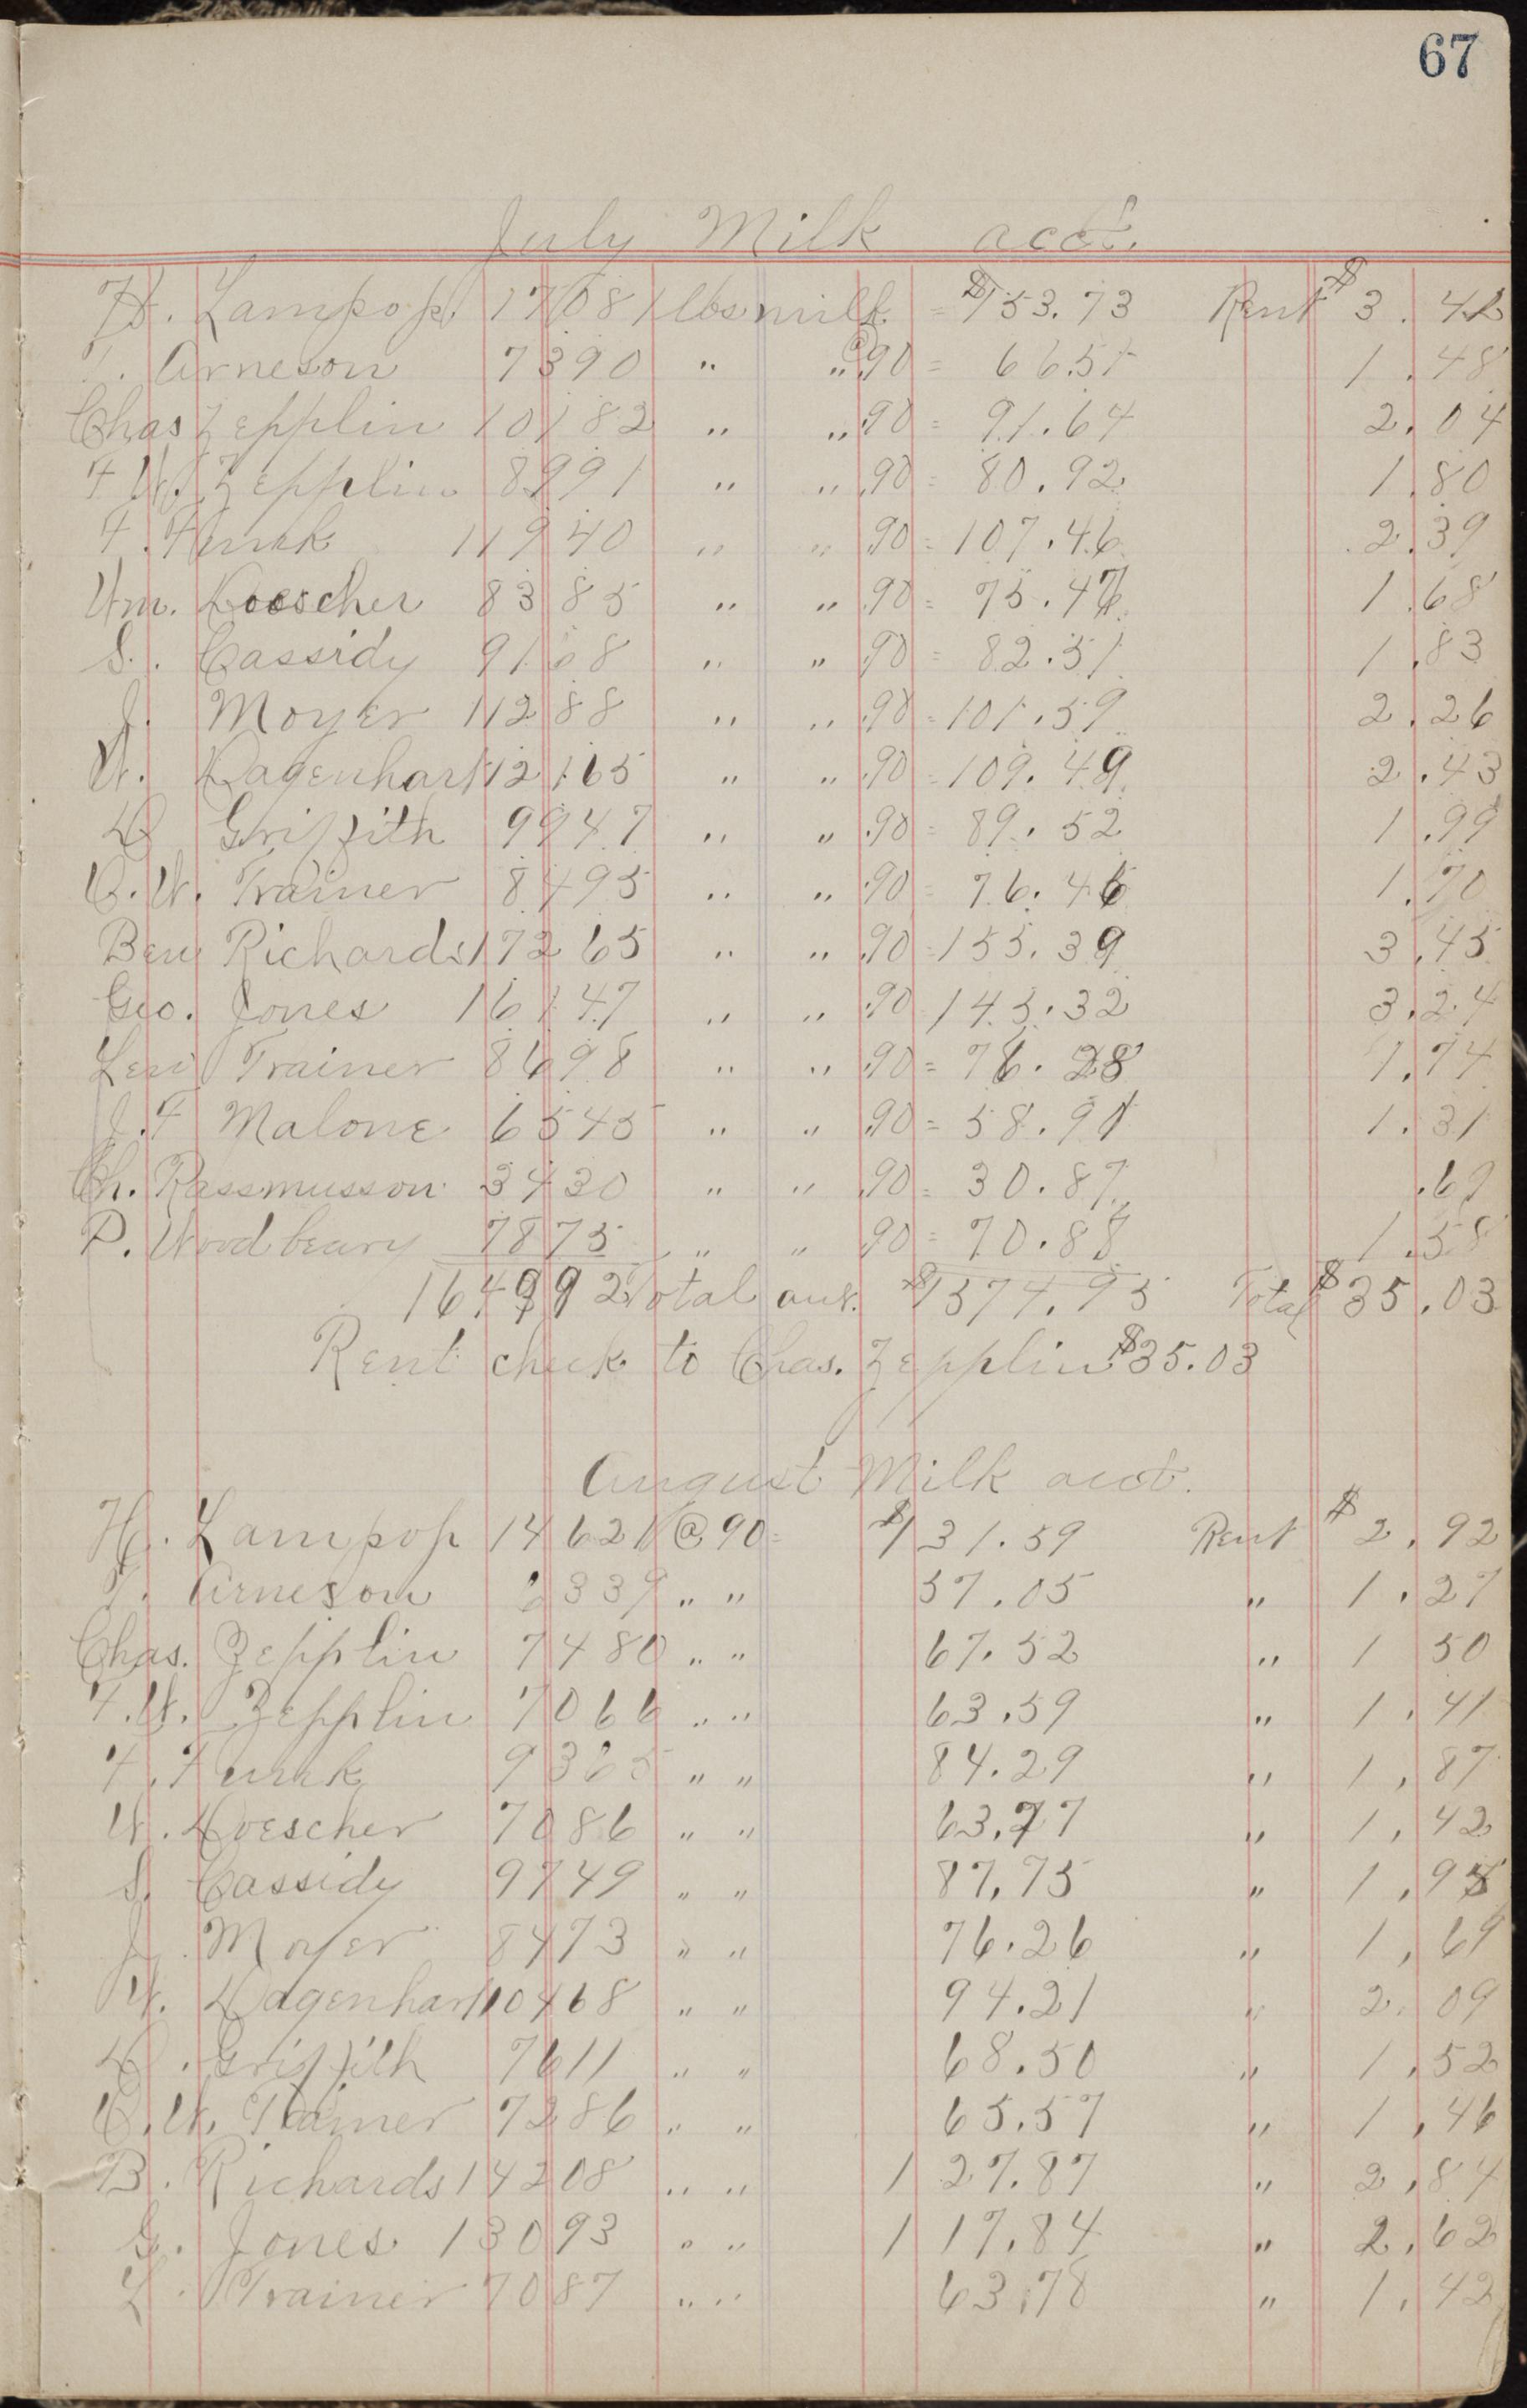 67
July Milk acct.
H. Lampop 17081 lbs milk = $153.73 Rent $3.42
T. Arneson 7390 " " @ .90 = 66.51 1.48
Chas Zepplin 10182 " " .90 = 91.64 2.04
F. W. Zepplin 8991 " " .90 = 80.92 1.80
F. 11940 " " .90 = 107.46 2.39
Wm. Doescher 8385 " " .90 = 75.47 1.68
S. Cassidy 9168 " " .90 = 82.51 1.83
J. Moyer 11288 " " .90 = 101.59 2.26
W. Dagenhart 12165 " " .90 = 109.49 2.43
D Griffith 9947 " " .90 = 89.52 1.99
C. W. Trainer 8495 " " .90 = 76.46 1.70
Ben Richards 17265 " " .90 = 155.39 3.45
Geo. Jones 16147 " " .90 145.32 3.24
Lew Trainer 8698 " " .90 = 78.28 1.74
J. F Malone 6545 " " .90 = 58.91 1.31
Ch. Rassmusson 3430 " " .90 = 30.87 .69
P. Woodbeary 7875 " " .90 = 70.88 1.58
164992 Total amt. $1574.95 Total $35.03
Rent check to Chas. Zepplin $35.03
August Milk acct.
H. Lampop 14621 @ 90 = $131.59 Rent $2.92
T. Arneson 6339 " " 57.05 " 1.27
Chas. Zepplin 7480 " " 67.32 " 1 50
F. W. Zepplin 7066 " " 63.59 " 1.41
F. 9365 " " 84.29 " 1.87
W. Doescher 7086 " " 63.77 " 1.42
S. Cassidy 9749 " " 87.75 " 1.95
J. Moyer 8473 " " 76.26 " 1.69
W. Dagenhart 10468 " " 94.21 " 2.09
D. Griffith 7611 " " 68.50 " 1.52
C. W. Trainer 7286 " " 65.57 " 1.46
B. Richards 14208 " " 127.87 " 2.84
G. Jones 13093 " " 117.84 " 2.62
L. Trainer 7087 " " 63.78 " 1.42